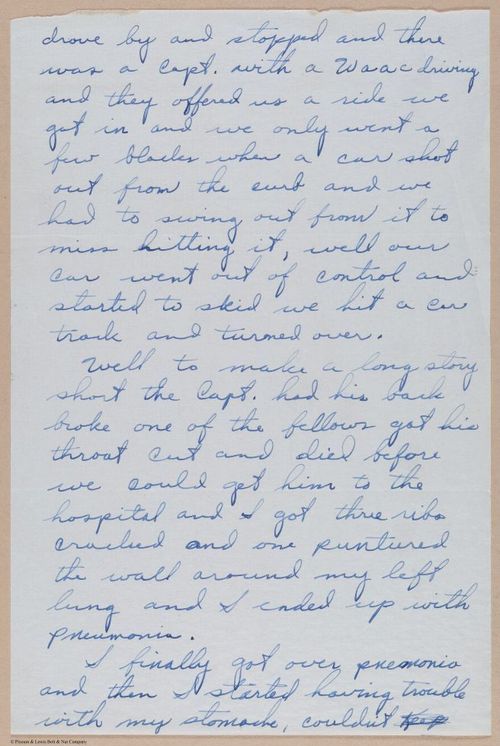 drove by and stopped and there
was a Capt. with a Waac driving
and they offered us a ride we
got in and we only went a
few blocks when a car shot
out from the curb and we
had to swing out from it to
miss hitting it, well our
car went out of control and
started to skid we hit a car
track and turned over.
Well to make a long story
short the Capt. had his back
broke one of the fellows got his
throat cut and died before
we could get him to the
hospital and I got three ribs
crushed and one puntured
the wall around my left
lung and I ended up with
pneumonia.
I finally got over pnemonia
and then I started having trouble
with my stomache, couldn't keep
© Pitsman & Lewis Bolt & Nut Company